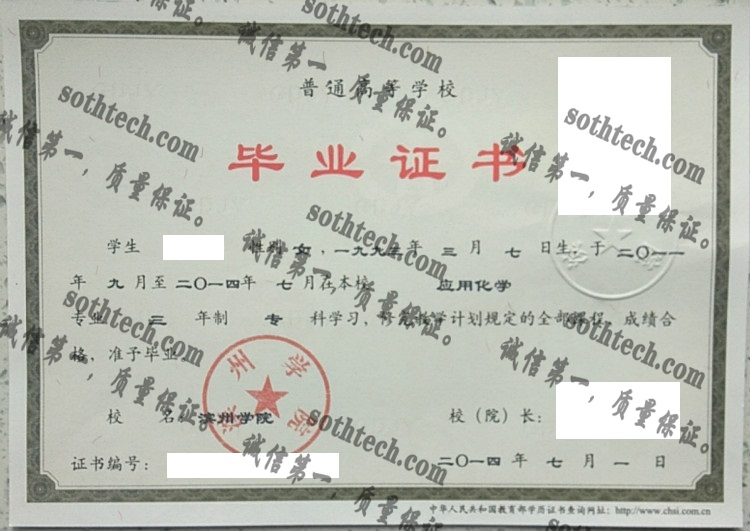 普通高等学校
毕业证书
学生 性别 女，一九九 年 三 月 七 日生，于 二〇一一
年 九 月至 二〇一四年 七 月在本校 应用化学
专业 三 年制 专 科学习，修完教学计划规定的全部课程，成绩合
格，准予毕业
校 名 滨州学院 校（院）长：
证书编号： 二〇一四 年 七 月 一 日
中华人民共和国教育部学历证书查询网址：http://www.chsi.com.cn
滨州学院
sothtech.com
诚信第一，质量保证。
sothtech.com
诚信第一，质量保证。
sothtech.com
诚信第一，质量保证。
sothtech.com
诚信第一，质量保证。
sothtech.com
诚信第一，质量保证。
sothtech.com
诚信第一，质量保证。
sothtech.com
诚信第一，质量保证。